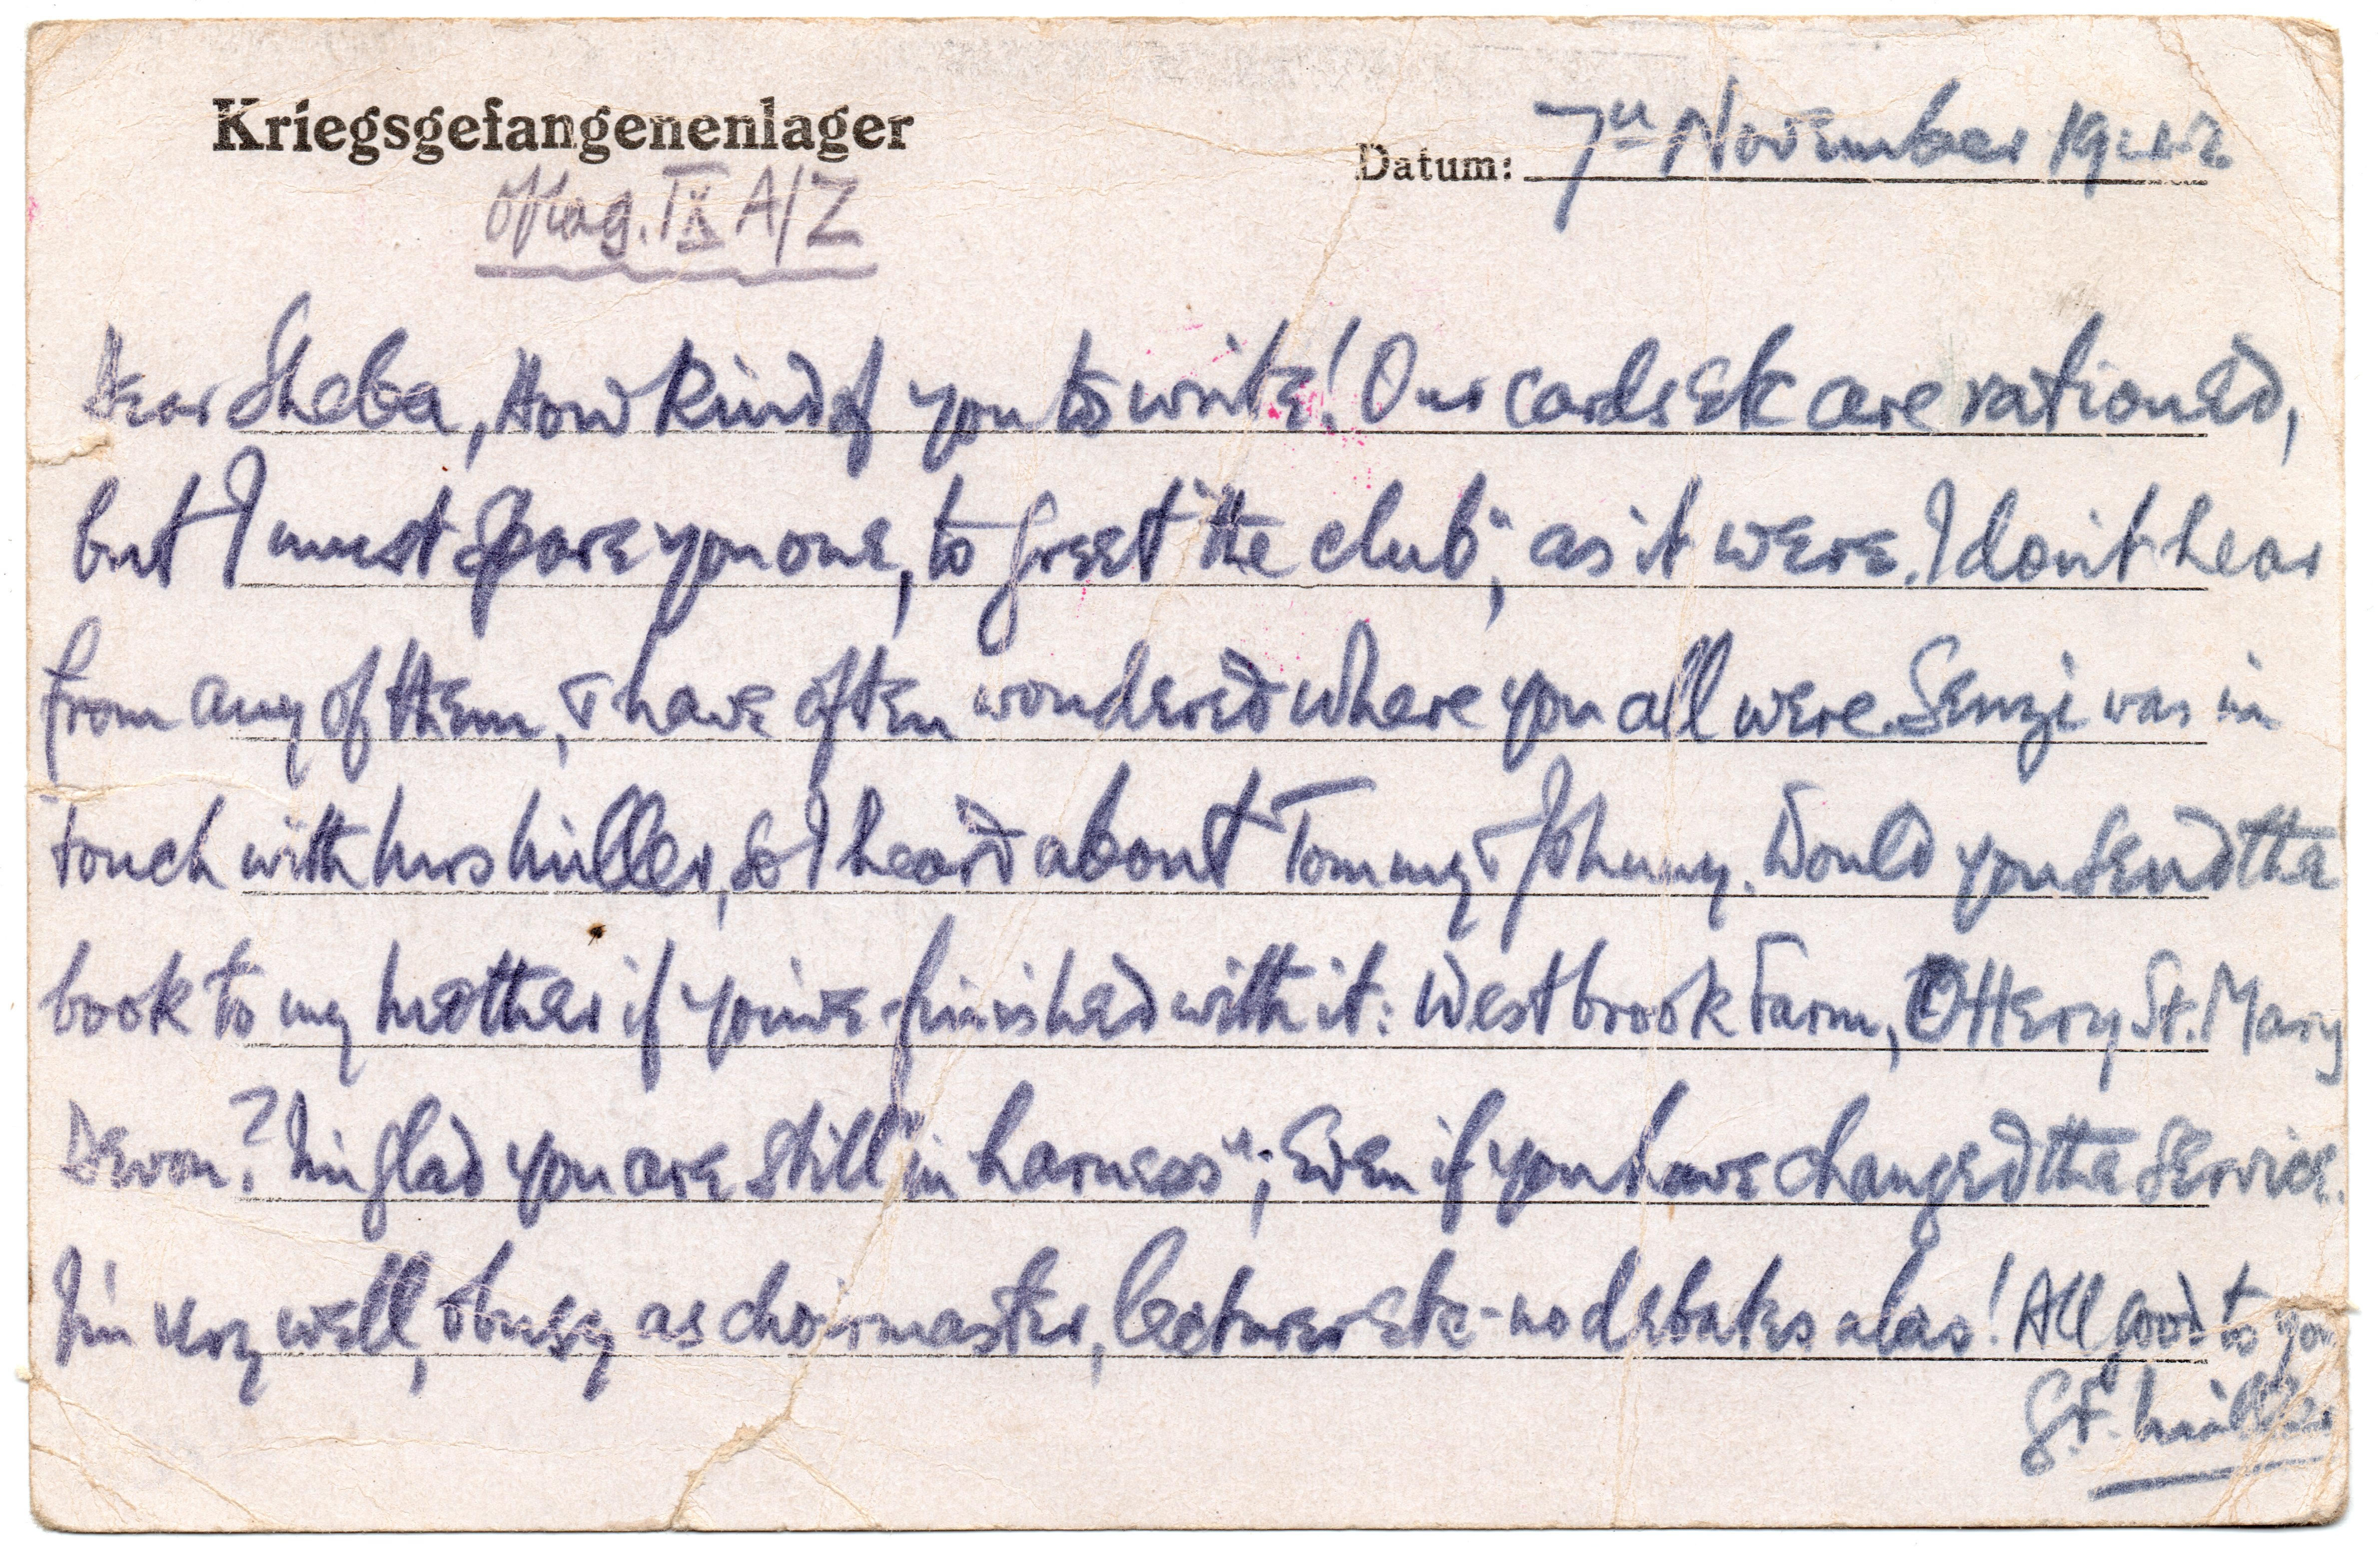 Kriegsgefangenenlager
Datum: 7th November 1942
Oflag. IX A/Z
Dear Sheba, How kind of you to write! Our cards etc are rationed,
but I must spare you one, to greet "the club", as it were. I don't hear
from any of them, & have often wondered where you all were. Senzi was in
touch with Mrs Miller, so I heard about Tommy & Johnny. Would you send the
book to my mother if you've finished with it: Westbrook Farm, Ottery St. Mary
Devon? I'm glad you are still "in harness"; even if you have changed the service.
I'm very well, & busy as choirmaster, lecturer etc - no debates alas! All good to you
G.F. Miller